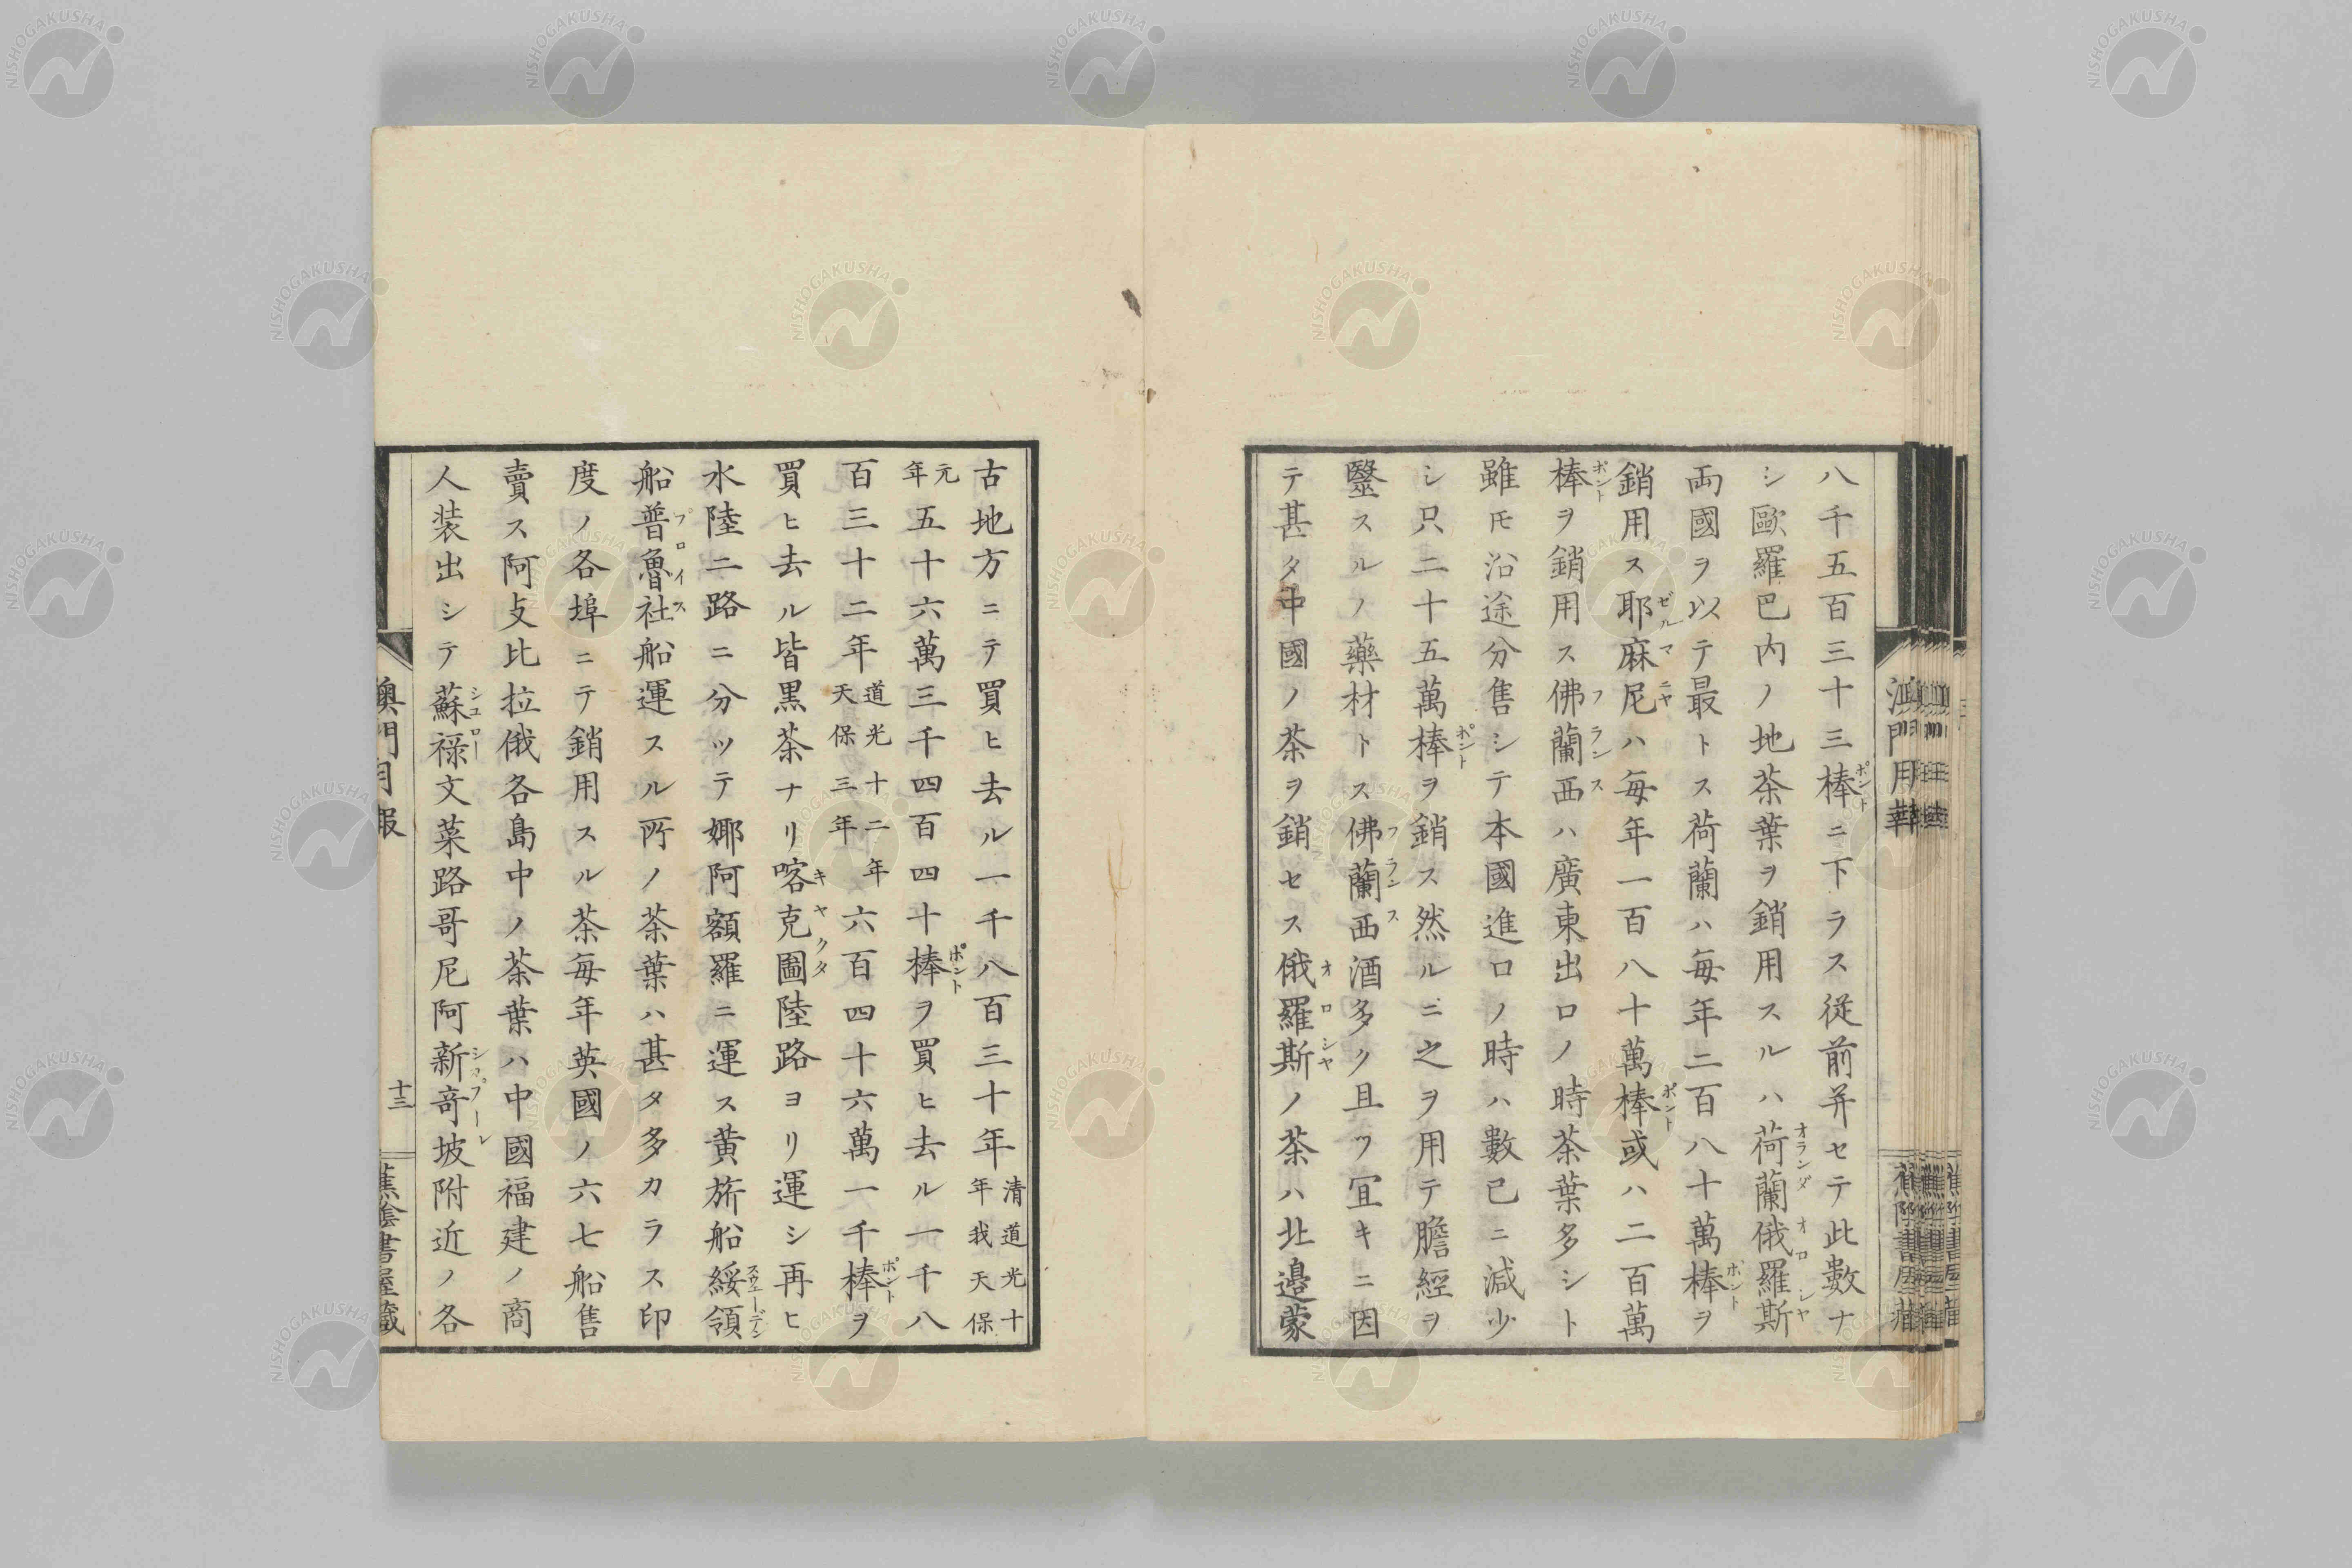 八千五百三十三棒ニ下ラス従前并セテ此數ナ
シ歐羅巴内ノ地茶葉ヲ銷用スルハ荷蘭俄羅斯
両國ヲ以テ最トス荷蘭ハ毎年二百八十萬棒ヲ
銷用ス耶麻尼ハ毎年一百八十萬棒或ハ二百萬
棒ヲ銷用ス佛蘭西ハ廣東出口ノ時茶葉多シト
雖モ沿途分售シテ本國進口ノ時ハ數已ニ減少
シ只二十五萬棒ヲ銷ス然ルニ之ヲ用テ膽經ヲ
醫スルノ藥材トス佛蘭西酒多ク且ツ冝キニ因
テ甚タ中國ノ茶ヲ銷セス俄羅斯ノ茶ハ北邉蒙
古地方ニテ買ヒ去ル一千八百三十年清道光十年我天保
元年五十六萬三千四百四十棒ヲ買ヒ去ル一千八
百三十二年道光十二年天保三年六百四十六萬一千棒ヲ
買ヒ去ル皆黒茶ナリ喀克圖陸路ヨリ運シ再ヒ
水陸二路ニ分ツテ娜阿額羅ニ運ス黄旂船綏領
船普魯社船運スル所ノ茶葉ハ甚タ多カラス印
度ノ各埠ニテ銷用スル茶毎年英國ノ六七船售
賣ス阿攴比拉俄各島中ノ茶葉ハ中國福建ノ商
人装出シテ蘇禄文莱路哥尼阿新竒坡附近ノ各
澳門月報
十三
蕉陰書屋藏